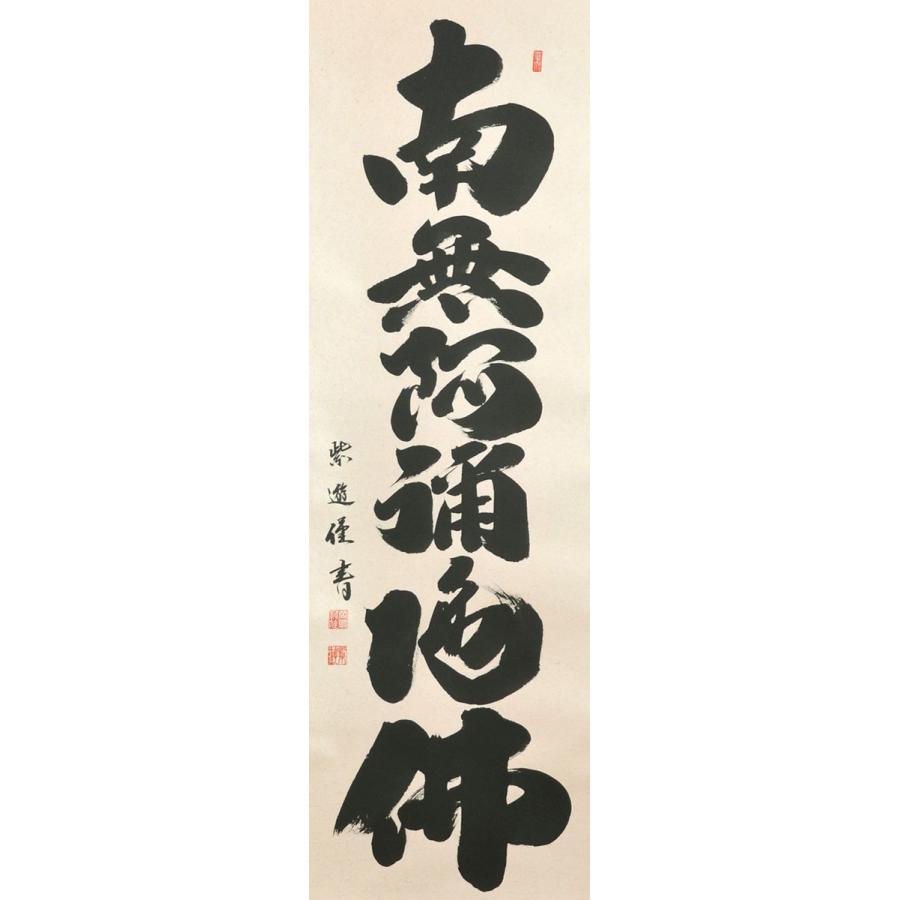 南無阿彌陀佛
紫遊僅書